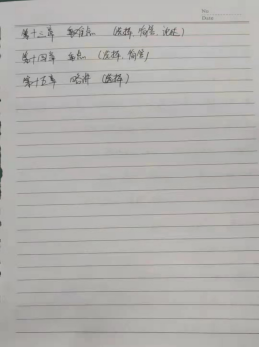 No.
Date
第十三章 重难点 (选择、简答、论述)
第十四章 重点 (选择、简答)
第十五章 (选择)